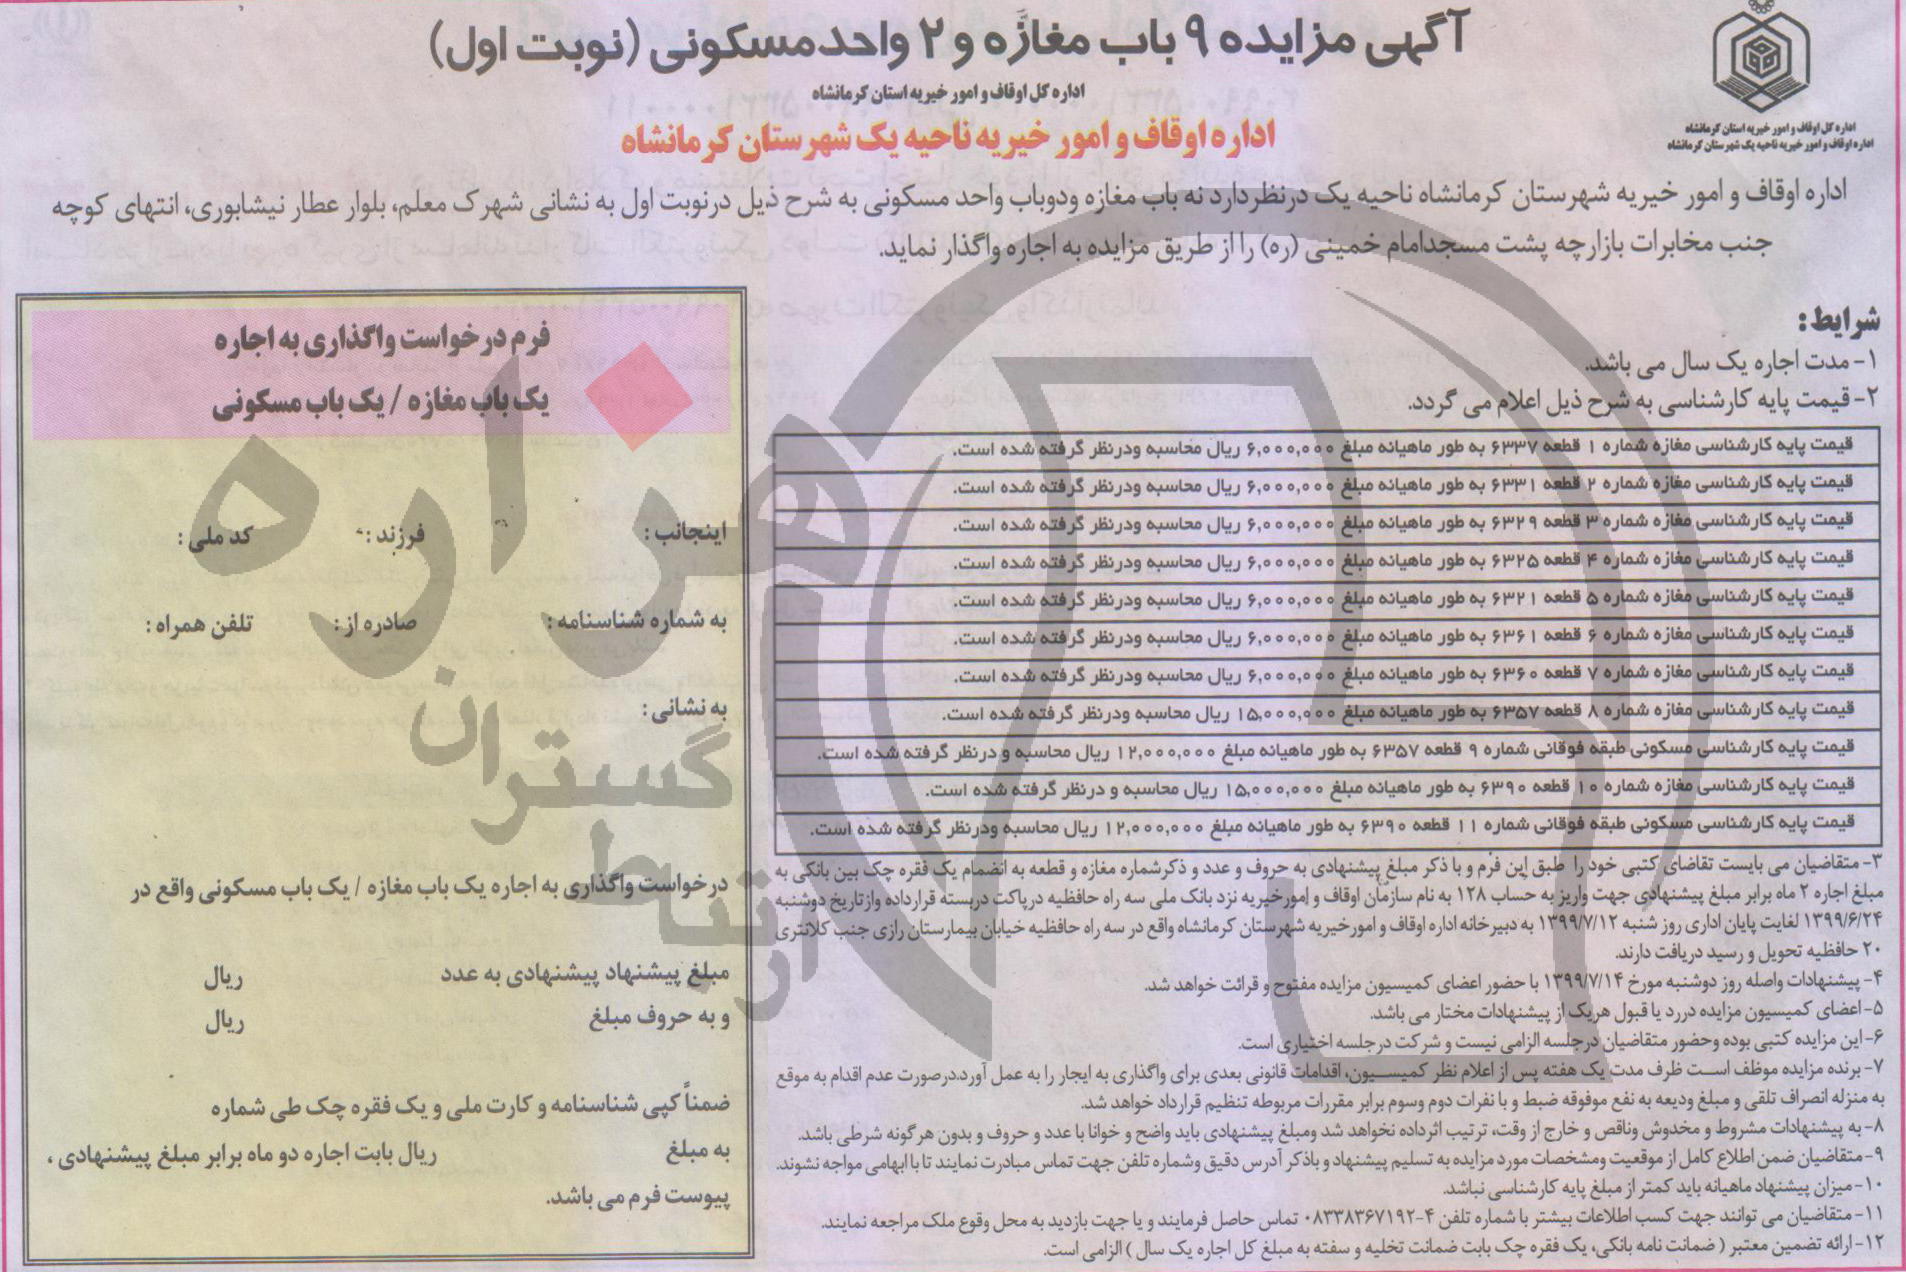 آگهی مزایده ۹ باب مغازه و ۲ واحد مسکونی (نوبت اول)
اداره کل اوقاف و امور خیریه استان کرمانشاه
اداره اوقاف و امور خیریه ناحیه یک شهرستان کرمانشاه
اداره کل اوقاف و امور خیریه استان کرمانشاه
اداره اوقاف و امور خیریه ناحیه یک شهرستان کرمانشاه
اداره اوقاف و امور خیریه شهرستان کرمانشاه ناحیه یک درنظر دارد نه باب مغازه ودوباب واحد مسکونی به شرح ذیل درنوبت اول به نشانی شهرک معلم، بلوار عطار نیشابوری، انتهای کوچه
جنب مخابرات بازارچه پشت مسجدامام خمینی (ره) را از طریق مزایده به اجاره واگذار نماید.
شرایط:
۱- مدت اجاره یک سال می باشد.
۲- قیمت پایه کارشناسی به شرح ذیل اعلام می گردد.
قیمت پایه کارشناسی مغازه شماره ۱ قطعه ۶۳۳۷ به طور ماهیانه مبلغ ۶,۰۰۰,۰۰۰ ریال محاسبه ودرنظر گرفته شده است.
قیمت پایه کارشناسی مغازه شماره ۲ قطعه ۶۳۳۱ به طور ماهیانه مبلغ ۶,۰۰۰,۰۰۰ ریال محاسبه ودرنظر گرفته شده است.
قیمت پایه کارشناسی مغازه شماره ۳ قطعه ۶۳۲۹ به طور ماهیانه مبلغ ۶,۰۰۰,۰۰۰ ریال محاسبه ودرنظر گرفته شده است.
قیمت پایه کارشناسی مغازه شماره ۴ قطعه ۶۳۲۵ به طور ماهیانه مبلغ ۶,۰۰۰,۰۰۰ ریال محاسبه ودرنظر گرفته شده است.
قیمت پایه کارشناسی مغازه شماره ۵ قطعه ۶۳۲۱ به طور ماهیانه مبلغ ۶,۰۰۰,۰۰۰ ریال محاسبه ودرنظر گرفته شده است.
قیمت پایه کارشناسی مغازه شماره ۶ قطعه ۶۳۶۱ به طور ماهیانه مبلغ ۶,۰۰۰,۰۰۰ ریال محاسبه ودرنظر گرفته شده است.
قیمت پایه کارشناسی مغازه شماره ۷ قطعه ۶۳۶۰ به طور ماهیانه مبلغ ۶,۰۰۰,۰۰۰ ریال محاسبه ودرنظر گرفته شده است.
قیمت پایه کارشناسی مغازه شماره ۸ قطعه ۶۳۵۷ به طور ماهیانه مبلغ ۱۵,۰۰۰,۰۰۰ ریال محاسبه ودرنظر گرفته شده است.
قیمت پایه کارشناسی مسکونی طبقه فوقانی شماره ۹ قطعه ۶۳۵۷ به طور ماهیانه مبلغ ۱۲,۰۰۰,۰۰۰ ریال محاسبه و درنظر گرفته شده است.
قیمت پایه کارشناسی مغازه شماره ۱۰ قطعه ۶۳۹۰ به طور ماهیانه مبلغ ۱۵,۰۰۰,۰۰۰ ریال محاسبه و درنظر گرفته شده است.
قیمت پایه کارشناسی مسکونی طبقه فوقانی شماره ۱۱ قطعه ۶۳۹۰ به طور ماهیانه مبلغ ۱۲,۰۰۰,۰۰۰ ریال محاسبه ودرنظر گرفته شده است.
۳- متقاضیان می بایست تقاضای کتبی خود را طبق این فرم و با ذکر مبلغ پیشنهادی به حروف و عدد و ذکرشماره مغازه و قطعه به انضمام یک فقره چک بین بانکی به
مبلغ اجاره ۲ ماه برابر مبلغ پیشنهادی جهت واریز به حساب ۱۲۸ به نام سازمان اوقاف و امورخیریه نزد بانک ملی سه راه حافظیه درپاکت دربسته قرارداده وازتاریخ دوشنبه
۱۳۹۹/۶/۲۴ لغایت پایان اداری روز شنبه ۱۳۹۹/۷/۱۲ به دبیرخانه اداره اوقاف و امورخیریه شهرستان کرمانشاه واقع در سه راه حافظیه خیابان بیمارستان رازی جنب کلانتری
۲۰ حافظیه تحویل و رسید دریافت دارند.
۴- پیشنهادات واصله روز دوشنبه مورخ ۱۳۹۹/۷/۱۴ با حضور اعضای کمیسیون مزایده مفتوح و قرائت خواهد شد.
۵- اعضای کمیسیون مزایده دررد یا قبول هریک از پیشنهادات مختار می باشد.
۶- این مزایده کتبی بوده وحضور متقاضیان درجلسه الزامی نیست و شرکت درجلسه اختیاری است.
۷- برنده مزایده موظف است ظرف مدت یک هفته پس از اعلام نظر کمیسیون، اقدامات قانونی بعدی برای واگذاری به ایجار را به عمل آورد.درصورت عدم اقدام به موقع
به منزله انصراف تلقی و مبلغ ودیعه به نفع موقوفه ضبط و با نفرات دوم وسوم برابر مقررات مربوطه تنظیم قرارداد خواهد شد.
۸- به پیشنهادات مشروط و مخدوش وناقص و خارج از وقت، ترتیب اثرداده نخواهد شد ومبلغ پیشنهادی باید واضح و خوانا با عدد و حروف و بدون هرگونه شرطی باشد.
۹- متقاضیان ضمن اطلاع کامل از موقعیت ومشخصات مورد مزایده به تسلیم پیشنهاد و باذکر آدرس دقیق وشماره تلفن جهت تماس مبادرت نمایند تا با ابهامی مواجه نشوند.
۱۰- میزان پیشنهاد ماهیانه باید کمتر از مبلغ پایه کارشناسی نباشد.
۱۱- متقاضیان می توانند جهت کسب اطلاعات بیشتر با شماره تلفن ۴-۰۸۳۳۸۳۶۷۱۹۲ تماس حاصل فرمایند و یا جهت بازدید به محل وقوع ملک مراجعه نمایند.
۱۲- ارائه تضمین معتبر ( ضمانت نامه بانکی، یک فقره چک بابت ضمانت تخلیه و سفته به مبلغ کل اجاره یک سال ) الزامی است.
فرم درخواست واگذاری به اجاره
یک باب مغازه / یک باب مسکونی
اینجانب : فرزند : کد ملی :
به شماره شناسنامه : صادره از : تلفن همراه :
به نشانی :
درخواست واگذاری به اجاره یک باب مغازه / یک باب مسکونی واقع در
مبلغ پیشنهاد پیشنهادی به عدد ریال
و به حروف مبلغ ریال
ضمناً کپی شناسنامه و کارت ملی و یک فقره چک طی شماره
به مبلغ ریال بابت اجاره دو ماه برابر مبلغ پیشنهادی ،
پیوست فرم می باشد.
هزاره
گستران
ارتباط